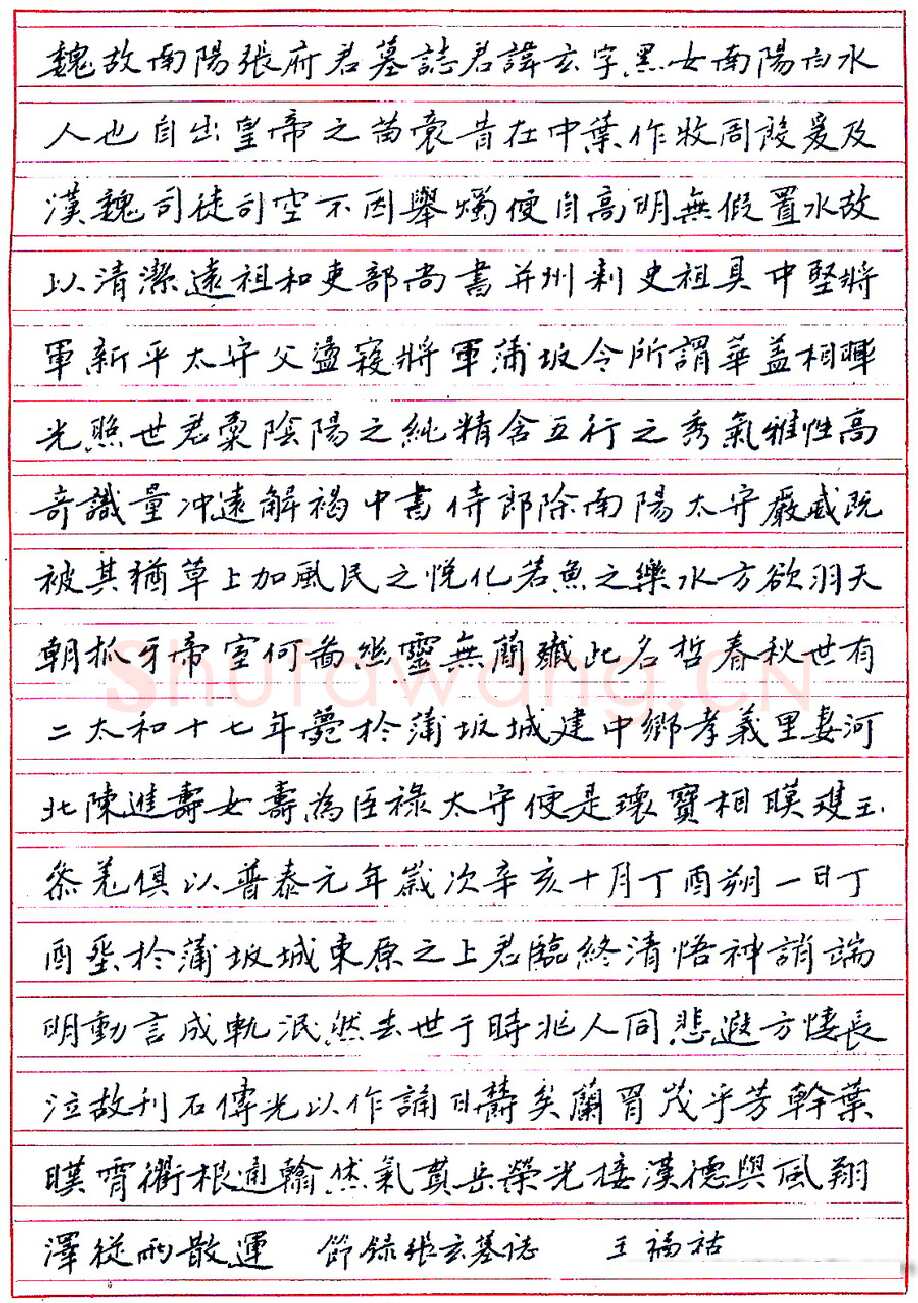 魏故南陽張府君墓誌君諱玄字黑女南陽白水
人也自出皇帝之苗裔昔在中葉作牧周殷爰及
漢魏司徒司空不因舉燭便自高明無假置水故
以清潔遠祖和吏部尚書并州刺史祖具中堅將
軍新平太守父盪寇將軍蒲坂令所謂華蓋相暉
光照世君稟陰陽之純精含五行之秀氣雅性高
奇識量冲遠解褐中書侍郎除南陽太守嚴威既
被其猶草上加風民之悅化若魚之樂水方欲羽天
朝抓牙帝室何啚幽靈無簡殲此名哲春秋世有
二太和十七年薨於蒲坂城建中鄉孝義里妻河
北陳進壽女壽為臣祿太守便是瓌寶相暎瓊玉
參差俱以普泰元年歲次辛亥十月丁酉朔一日丁
酉塟於蒲坂城東原之上君臨終清悟神誚端
明動言成軌泯然去世于時兆人同悲遐方悽長
泣故刊石傳光以作誦曰欝矣蘭胃茂乎芳幹葉
暎霄衢根通翰然氣貫岳榮光棲漢德與風翔
澤從雨散運 節錄張玄墓誌 王福祜
Shufawang.CN